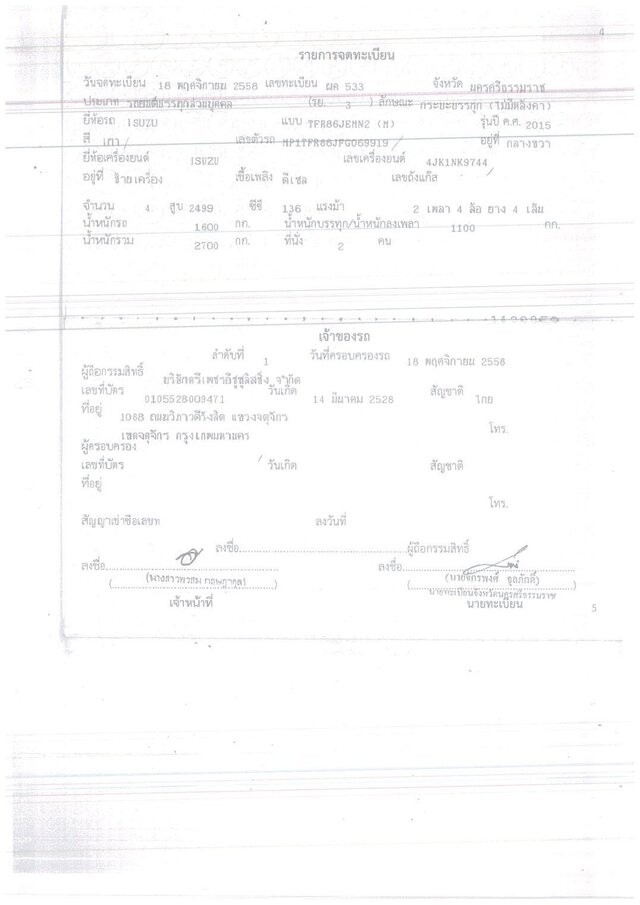 4
รายการจดทะเบียน
วันจดทะเบียน 18 พฤศจิกายน 2558 เลขทะเบียน ผค 533 จังหวัด นครศรีธรรมราช
ประเภท รถยนต์บรรทุกส่วนบุคคล (รย. 3 ) ลักษณะ กระบะบรรทุก (ไม่มีหลังคา)
ยี่ห้อรถ ISUZU แบบ TFR86JEMN2 (M) รุ่นปี ค.ศ. 2015
สี เทา เลขตัวรถ MP1TFR86JFG069919 อยู่ที่ กลางขวา
ยี่ห้อเครื่องยนต์ ISUZU เลขเครื่องยนต์ 4JK1NK9744
อยู่ที่ ซ้ายเครื่อง เชื้อเพลิง ดีเซล เลขถังแก๊ส
จำนวน 4 สูบ 2499 ซีซี 136 แรงม้า 2 เพลา 4 ล้อ ยาง 4 เส้น
น้ำหนักรถ 1600 กก. น้ำหนักบรรทุก/น้ำหนักลงเพลา 1100 กก.
น้ำหนักรวม 2700 กก. ที่นั่ง 2 คน
เจ้าของรถ
ลำดับที่ 1 วันที่ครอบครองรถ 18 พฤศจิกายน 2558
ผู้ถือกรรมสิทธิ์ บริษัทตรีเพชรอีซูซุลิสซิ่ง จำกัด
เลขที่บัตร 0105528009471 วันเกิด 14 มีนาคม 2528 สัญชาติ ไทย
ที่อยู่ 1088 ถนนวิภาวดีรังสิต แขวงจตุจักร
เขตจตุจักร กรุงเทพมหานคร โทร.
ผู้ครอบครอง
เลขที่บัตร วันเกิด สัญชาติ
ที่อยู่
โทร.
สัญญาเช่าซื้อเลขที่ ลงวันที่
ลงชื่อ ผู้ถือกรรมสิทธิ์
ลงชื่อ ลงชื่อ
(นางสาวพรสม) (นายจักรพงศ์ จุลภักดิ์)
นายทะเบียนจังหวัดนครศรีธรรมราช
เจ้าหน้าที่ นายทะเบียน
5